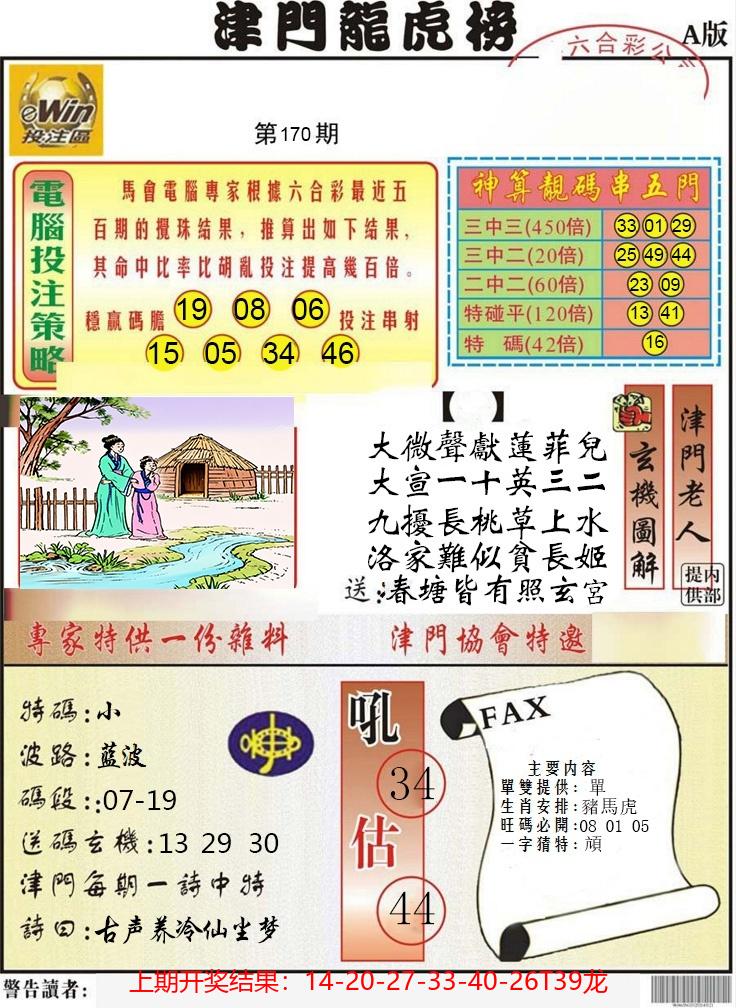 津門龍虎榜
A版
六合彩公
eWin
投注區
第170期
電腦投注策略
馬會電腦專家根據六合彩最近五
百期的攪珠结果，推算出如下结果，
其命中比率比胡亂投注提高幾百倍。
穩贏碼膽 19 08 06 投注串射
15 05 34 46
神算靚碼串五門
三中三(450倍) 33 01 29
三中二(20倍) 25 49 44
二中二(60倍) 23 09
特碰平(120倍) 13 41
特 碼(42倍) 16
【 】
大微聲獻蓮菲兒
大宣一十英三二
九擾長桃草上水
洛家難似貧長姬
送:春塘皆有照玄宮
玄機圖解
津門老人
内部提供
專家特供一份雜料
津門協會特邀
特碼:小
波路:蓝波
碼段::07-19
送碼玄機:13 29 30
津門每期一詩中特
詩曰:古声养冷仙尘梦
吼
34
估
44
FAX
主要内容
單雙提供: 單
生肖安排:豬馬虎
旺码必開:08 01 05
一字猜特: 頑
警告讀者:
上期开奖结果：14-20-27-33-40-26T39龙